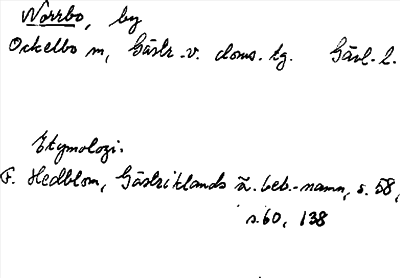 Norrbo, by
Ockelbo sn, Gästr. v. doms. tg. Gävl. l.
Etymologi.
F. Hedblom, Gästriklands ä. beb.-namn, s. 58,
s. 60, 138